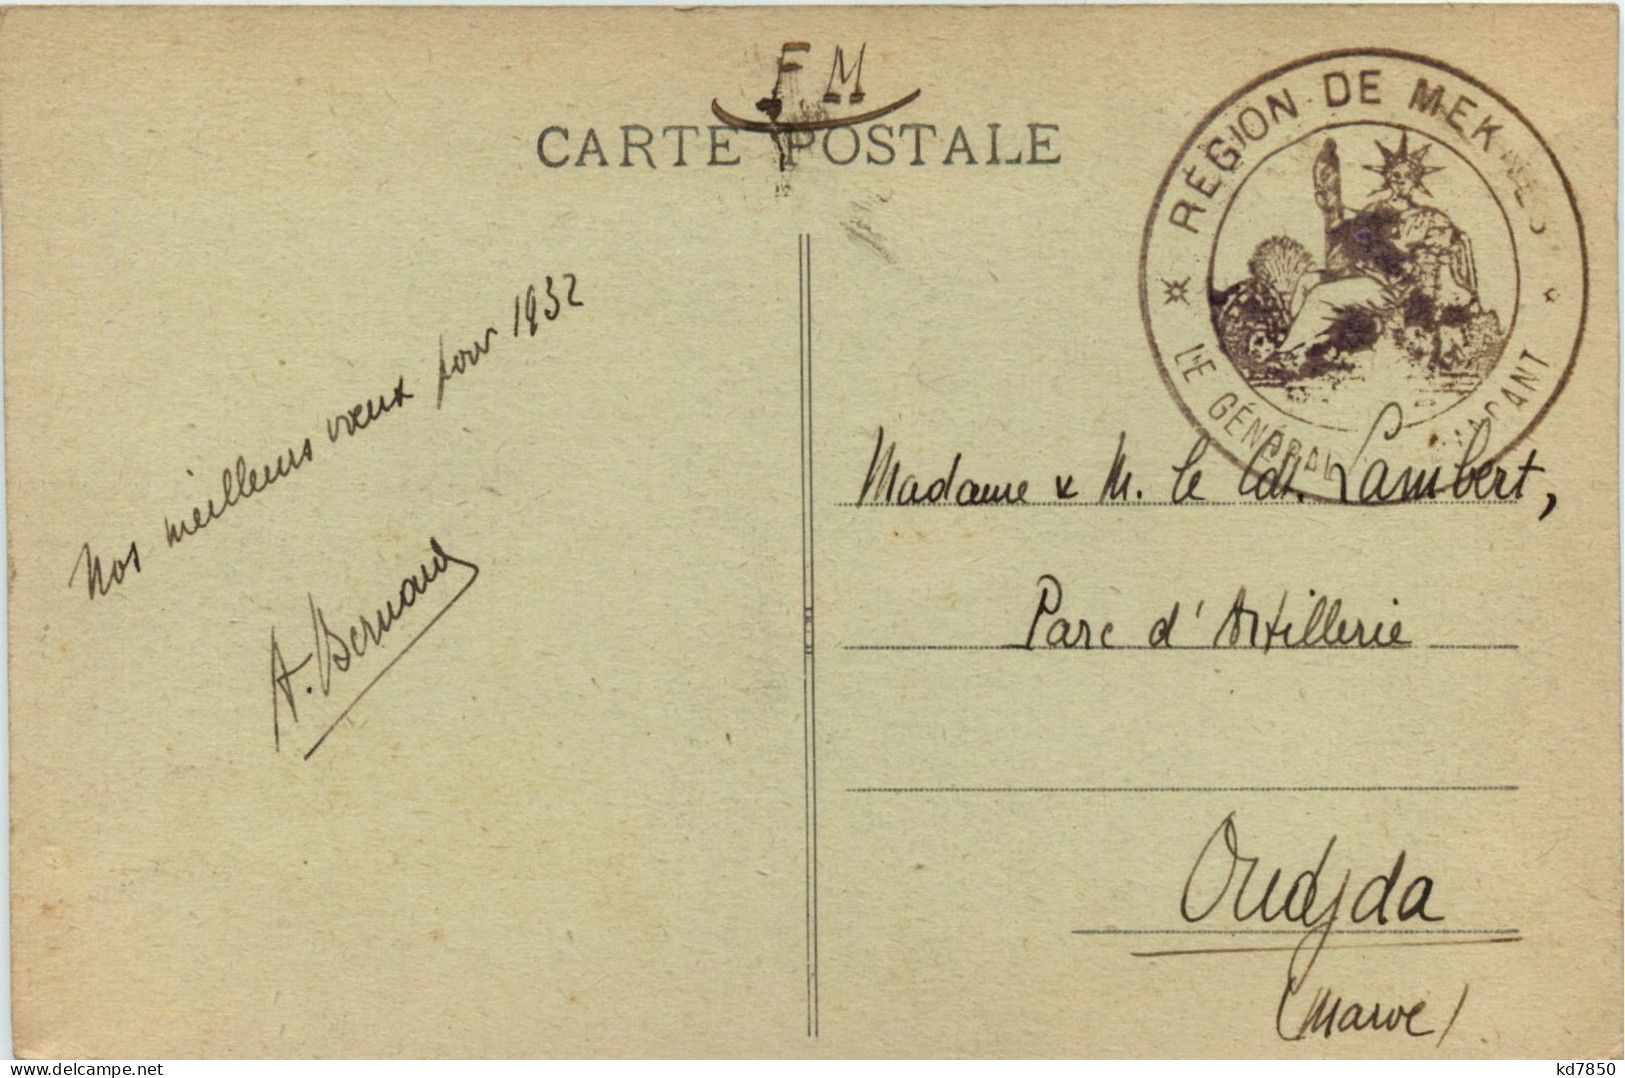 F M
CARTE POSTALE
RÉGION DE MEKNES
LE GÉNÉRAL
Nos meilleurs vœux pour 1932
A. Bernard
Madame & M. le Cdt. Lambert,
Parc d'Artillerie
Oudjda
(Maroc)
delcampe.net
kd7850